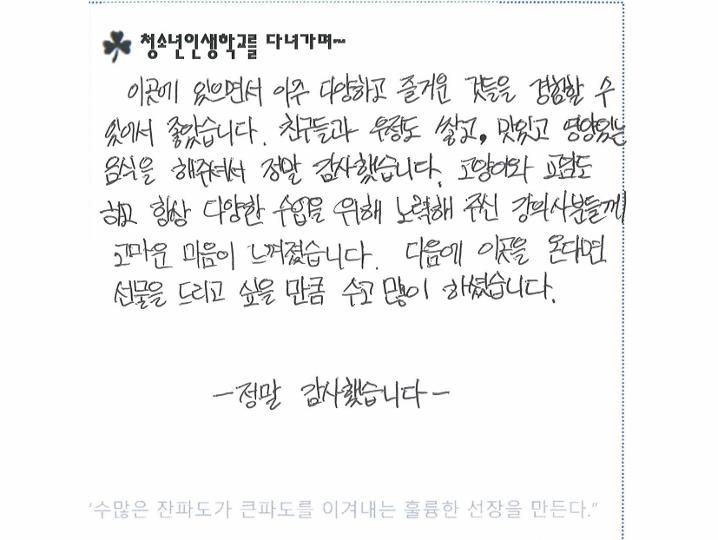 청소년인생학교를 다녀가며~
이곳에 있으면서 아주 다양하고 즐거운 것들을 경험할 수
있어서 좋았습니다. 친구들과 우정도 쌓고, 맛있고 영양있는
음식을 해주셔서 정말 감사했습니다. 고양이와 교감도
하고 항상 다양한 수업을 위해 노력해 주신 강의사분들께
고마운 마음이 느껴졌습니다. 다음에 이곳을 온다면
선물을 드리고 싶을 만큼 수고 많이 하셨습니다.
-정말 감사했습니다-
‘수많은 잔파도가 큰파도를 이겨내는 훌륭한 선장을 만든다.”